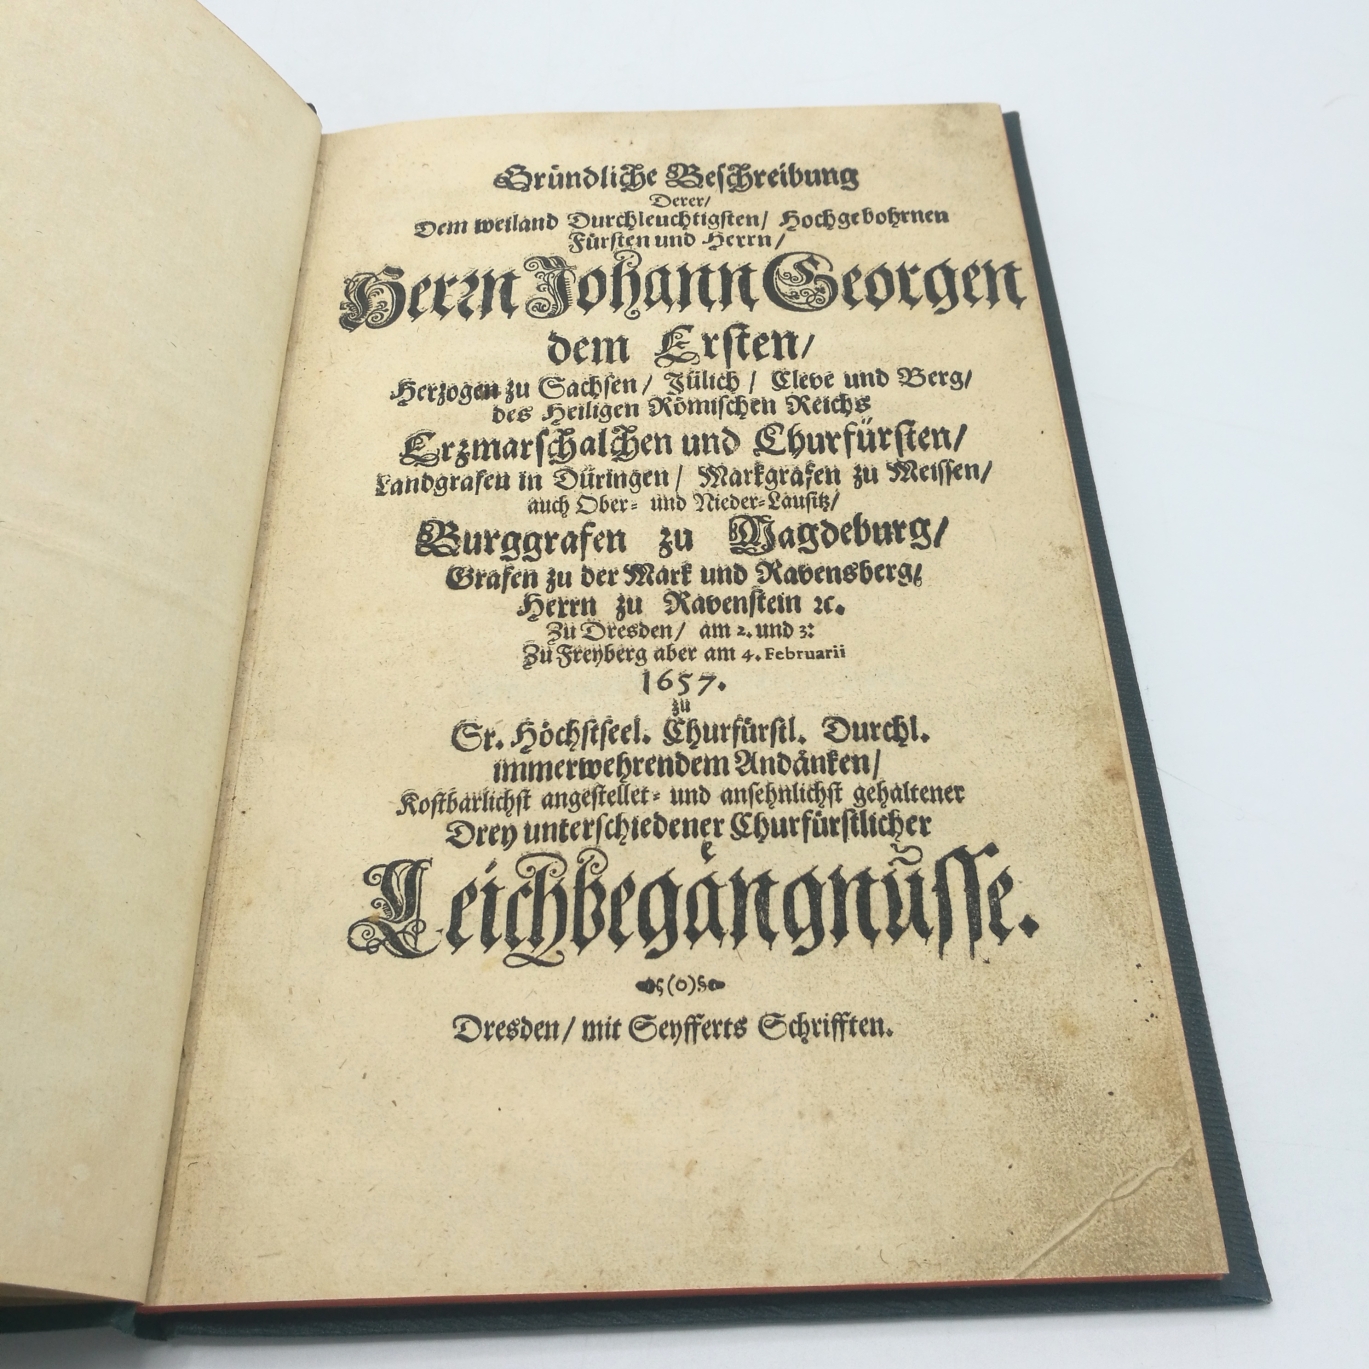 Gründliche Beschreibung
Derer/
Dem weiland Durchleuchtigsten/ Hochgebohrnen
Fürsten und Herrn/
Herrn Johann Georgen
dem Ersten/
Herzogen zu Sachsen/ Jülich/ Cleve und Berg/
des Heiligen Römischen Reichs
Erzmarschalchen und Churfürsten/
Landgrafen in Düringen/ Markgrafen zu Meissen/
auch Ober- und Nieder-Lausitz/
Burggrafen zu Magdeburg/
Grafen zu der Mark und Ravensberg/
Herrn zu Ravenstein ꝛc.
Zu Dresden/ am 2. und 3:
Zu Freyberg aber am 4. Februarii
1657.
zu
Sr. Höchstseel. Churfürstl. Durchl.
immerwehrendem Andänken/
Kostbarlichst angestellet- und ansehnlichst gehaltener
Drey unterschiedener Churfürstlicher
Leichbegängnüsse.
(o)
Dresden/ mit Seyfferts Schrifften.